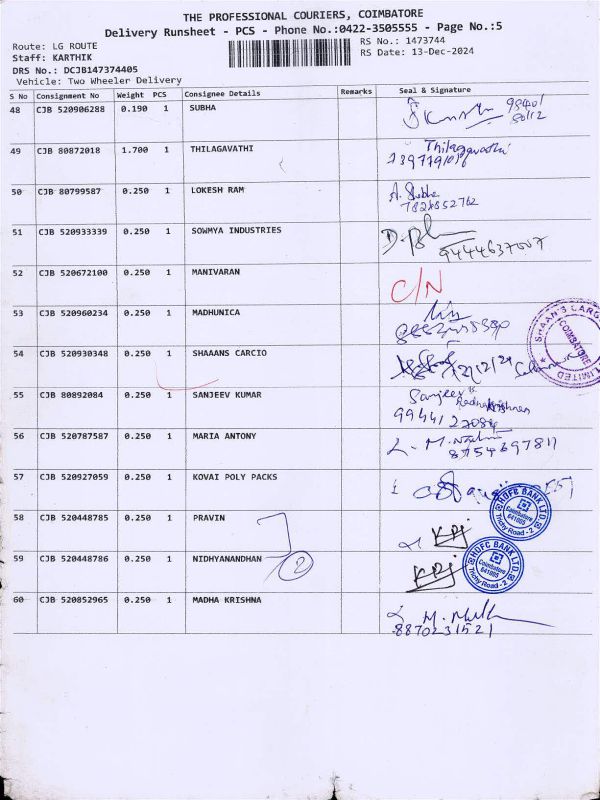 THE PROFESSIONAL COURIERS, COIMBATORE
Delivery Runsheet - PCS - Phone No.:0422-3505555 - Page No.:5
Route: LG ROUTE RS No.: 1473744
Staff: KARTHIK RS Date: 13-Dec-2024
DRS No.: DCJB147374405
Vehicle: Two Wheeler Delivery
S No Consignment No Weight PCS Consignee Details Remarks Seal & Signature
48 CJB 520906288 0.190 1 SUBHA
49 CJB 80872018 1.700 1 THILAGAVATHI Thilagavathi
50 CJB 80799587 0.250 1 LOKESH RAM
51 CJB 520933339 0.250 1 SOWMYA INDUSTRIES 9444637007
52 CJB 520672100 0.250 1 MANIVARAN C/N
53 CJB 520960234 0.250 1 MADHUNICA
54 CJB 520930348 0.250 1 SHAAANS CARCIO 12/12/24
55 CJB 80892084 0.250 1 SANJEEV KUMAR Sanjeev
Radhakrishnan
9944127084
56 CJB 520787587 0.250 1 MARIA ANTONY
8754697811
57 CJB 520927059 0.250 1 KOVAI POLY PACKS
58 CJB 520448785 0.250 1 PRAVIN
HDFC BANK LTD Coimbatore 641005 Trichy Road - 2
59 CJB 520448786 0.250 1 NIDHYANANDHAN 2
HDFC BANK LTD Coimbatore 641005 Trichy Road - 2
60 CJB 520852965 0.250 1 MADHA KRISHNA
8870231521